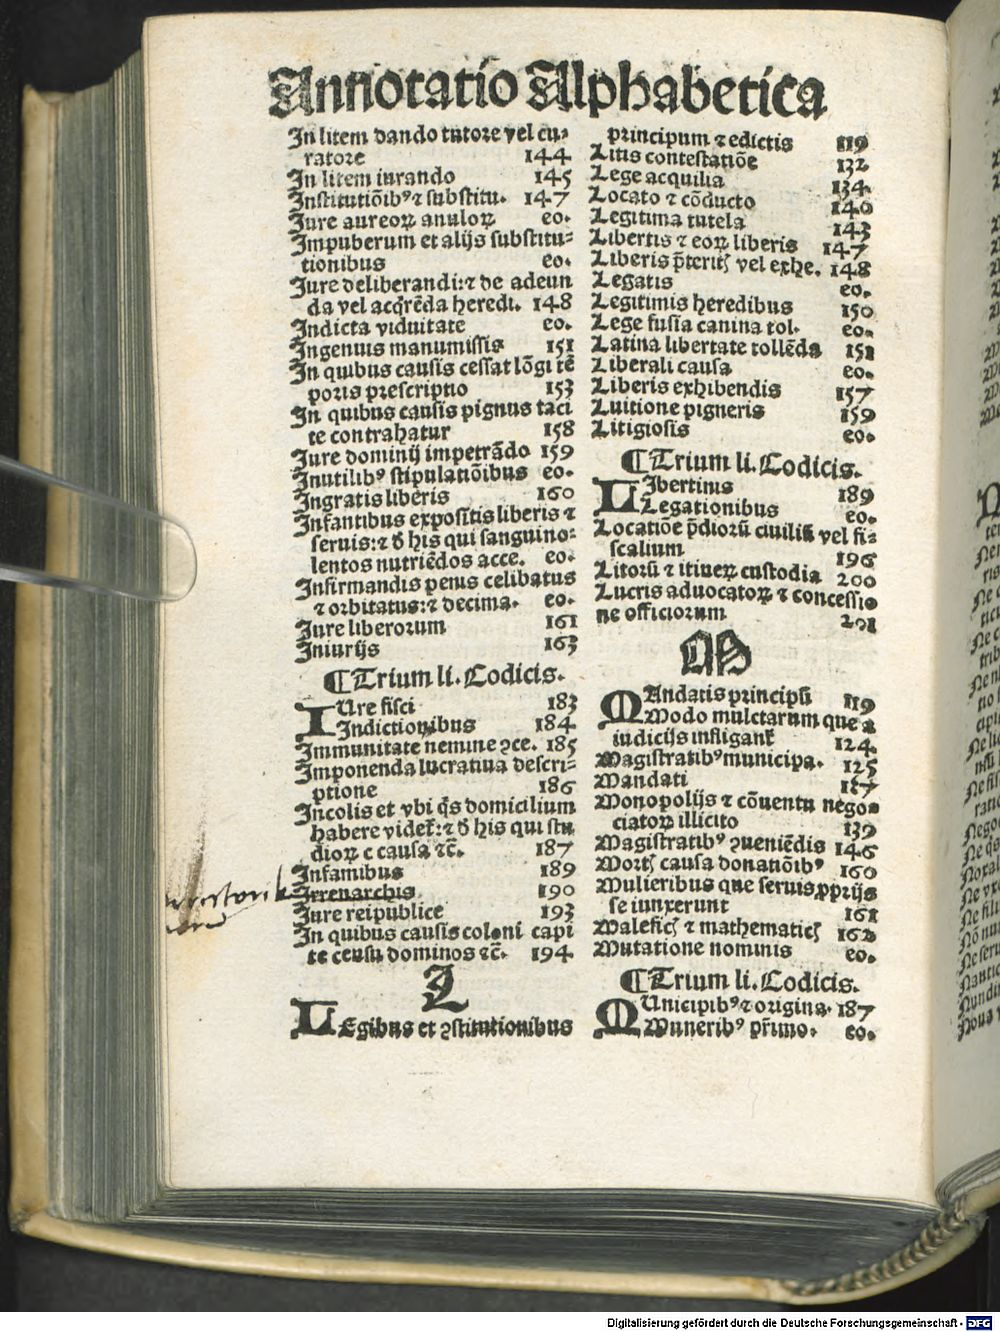 Annotatio Alphabetica
In litem dando tutore vel cu⸗
ratore 144
In litem iurando 145
Institutiõibꝰ ⁊ substitu. 147
Iure aureoꝝ anuloꝝ eo.
Impuberum et alijs substitu⸗
tionibus eo.
Iure deliberandi:⁊ de adeun
da vel acq̃rẽda heredi. 148
Indicta viduitate eo.
Ingenuis manumissis 151
In quibus causis cessat lõgi tẽ
poris prescriptio 153
In quibus causis pignus taci
te contrahatur 158
Iure dominij impetrãdo 159
Inutilibꝰ stipulatiõibus eo.
Ingratis liberis 160
Infantibus expositis liberis ⁊
seruis:⁊ đ his qui sanguino⸗
lentos nutriẽdos acce. eo.
Infirmandis penis celibatus
⁊ orbitatus:⁊ decima. eo.
Iure liberorum 161
Iniurijs 163
¶Trium li. Codicis.
IUre fisci 183
Indictionibus 184
Immunitate nemine ꝯce. 185
Imponenda lucratiua descri⸗
ptione 186
Incolis et vbi q̃s domicilium
habere videt̃:⁊ đ his qui stu
dioꝝ c causa ⁊c̃. 187
Infamibus 189
Irrenarchis 190
Iure reipublice 193
In quibus causis coloni capi
te censu dominos ⁊c̃. 194
L
LEgibus et ꝯstitutionibus
principum ⁊ edictis 119
Litis contestatiõe 132
Lege acquilia 134
Locato ⁊ cõducto 140
Legitima tutela 143
Libertis ⁊ eoꝝ liberis 147
Liberis p̃teritꝭ vel exhe. 148
Legatis eo.
Legitimis heredibus 150
Lege fusia canina tol. eo.
Latina libertate tollẽda 151
Liberali causa eo.
Liberis exhibendis 157
Luitione pigneris 159
Litigiosis eo.
¶Trium li. Codicis.
LIbertinis 189
Legationibus eo.
Locatiõe p̃dioꝝ ciuiliũ vel fi⸗
scalium 196
Litorũ ⁊ itineꝝ custodia 200
Lucris aduocatoꝝ ⁊ concessio
ne officiorum 201
M
MAndatis principũ 119
Modo mulctarum que a
iudicijs infligant̃ 124
Magistratibꝰ municipa. 125
Mandati 137
Monopolijs ⁊ cõuentu nego⸗
ciatoꝝ illicito 139
Magistratibꝰ ꝯueniẽdis 146
Mortꝭ causa donatiõibꝰ 160
Mulieribus que seruis ꝓprijs
se iunxerunt 161
Maleficꝭ ⁊ mathematicꝭ 162
Mutatione nominis eo.
¶Trium li. Codicis.
MUnicipibꝰ ⁊ origina. 187
Muneribꝰ pr̃imo. eo.
Digitalisierung gefördert durch die Deutsche Forschungsgemeinschaft - DFG